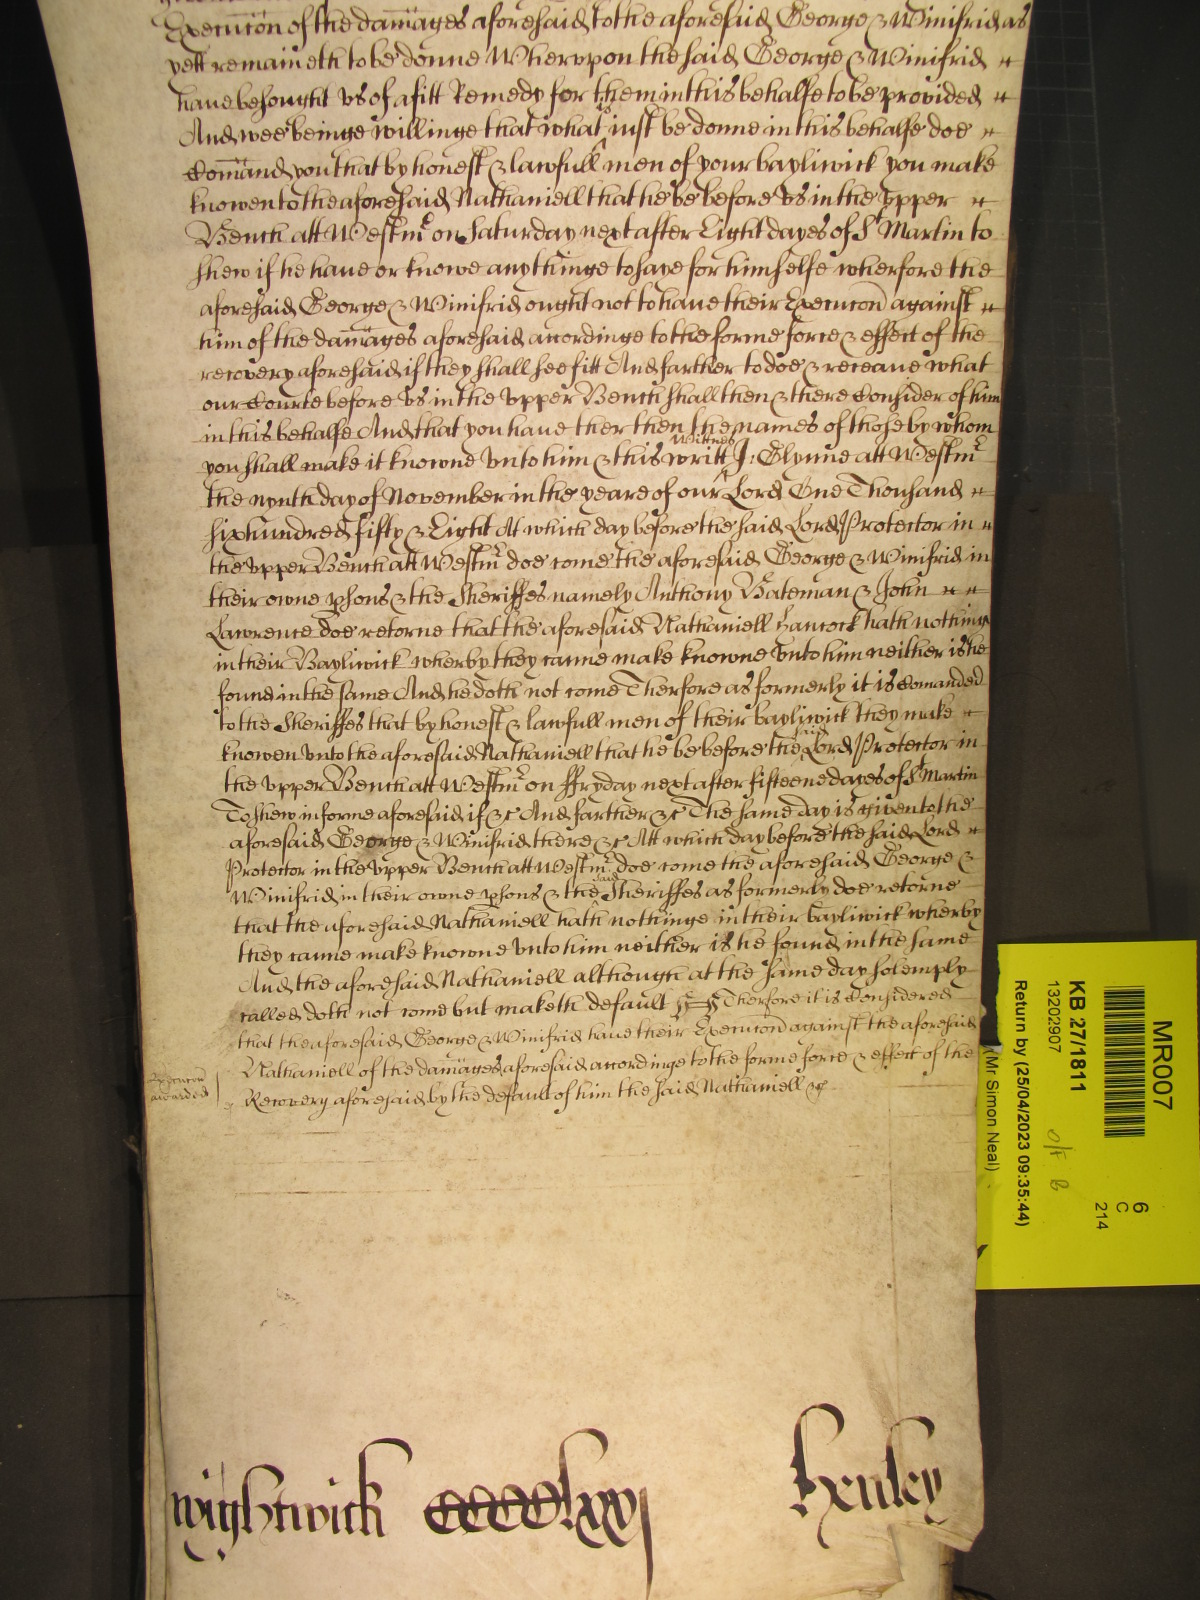 Execucon of the damages aforesaid to the aforesaid George & Winifrid as
yett remaineth to be donne Wherupon the said George & Winifrid
have besought us of a fitt Remedy for them in this behalfe to be provided
And wee beinge willinge that what is just be donne in this behalfe doe
Comand you that by honest & lawfull men of your bayliwick you make
knowen to the aforesaid Nathaniell that he be before us in the upper
Bench att Westmr on Saturday next after Eight dayes of St Martin to
shew if he have or knowe any thinge to saye for himselfe wherfore the
aforesaid George & Winifrid ought not to have their Execucon against
him of the damages aforesaid accordinge to the forme force & effect of the
recovery aforesaid if they shall see fitt And farther to doe & receave what
our Courte before us in the upper Bench shall then & there Consider of him
in this behalfe And that you have ther then the names of those by whom
you shall make it knowne unto him & this writt Wittnes J: Glynne att Westmr
the nynth day of November in the yeare of our Lord One Thousand
six hundred fifty & Eight At which day before the said Lord Protector in
the upper Bench att Westmr doe come the aforesaid George & Winifrid in
their owne psons & the Sheriffes namely Anthony Bateman & John
Lawrence doe retorne that the aforesaid Nathaniell Hancock hath nothing
in their Bayliwick wherby they canne make knowne unto him neither is he
found in the same And he doth not come Therfore as formerly it is Comanded
to the Sheriffes that by honest & lawfull men of their bayliwick they make
knowen unto the aforesaid Nathaniell that he be before the said Lord Protector in
the upper Bench att Westmr on ffryday next after fifteene dayes of St Martin
To shew in forme aforesaid if &c And farther &c The same day is given to the
aforesaid George & Winifrid there &c Att which day before the said Lord
Protector in the upper Bench att Westmr doe come the aforesaid George &
Winifrid in their owne psons & the said Sheriffes as formerly doe retorne
that the aforesaid Nathaniell hath nothinge in their bayliwick wherby
they canne make knowne unto him neither is he found in the same
And the aforesaid Nathaniell although at the same day solemply
called doth not come but maketh default Therfore it is Considered
that the aforesaid George & Winifrid have their Execucon against the aforesaid
Nathaniell of the damages aforesaid accordinge to the forme force & effect of the
Recovery aforesaid by the default of him the said Nathaniell &c
Execucon
awarded
wightwick CCCClxxj Henley
MR007
KB 27/1811
13202907
Return by (25/04/2023 09:35:44)
(Mr Simon Neal)
6
C
214
O/F B